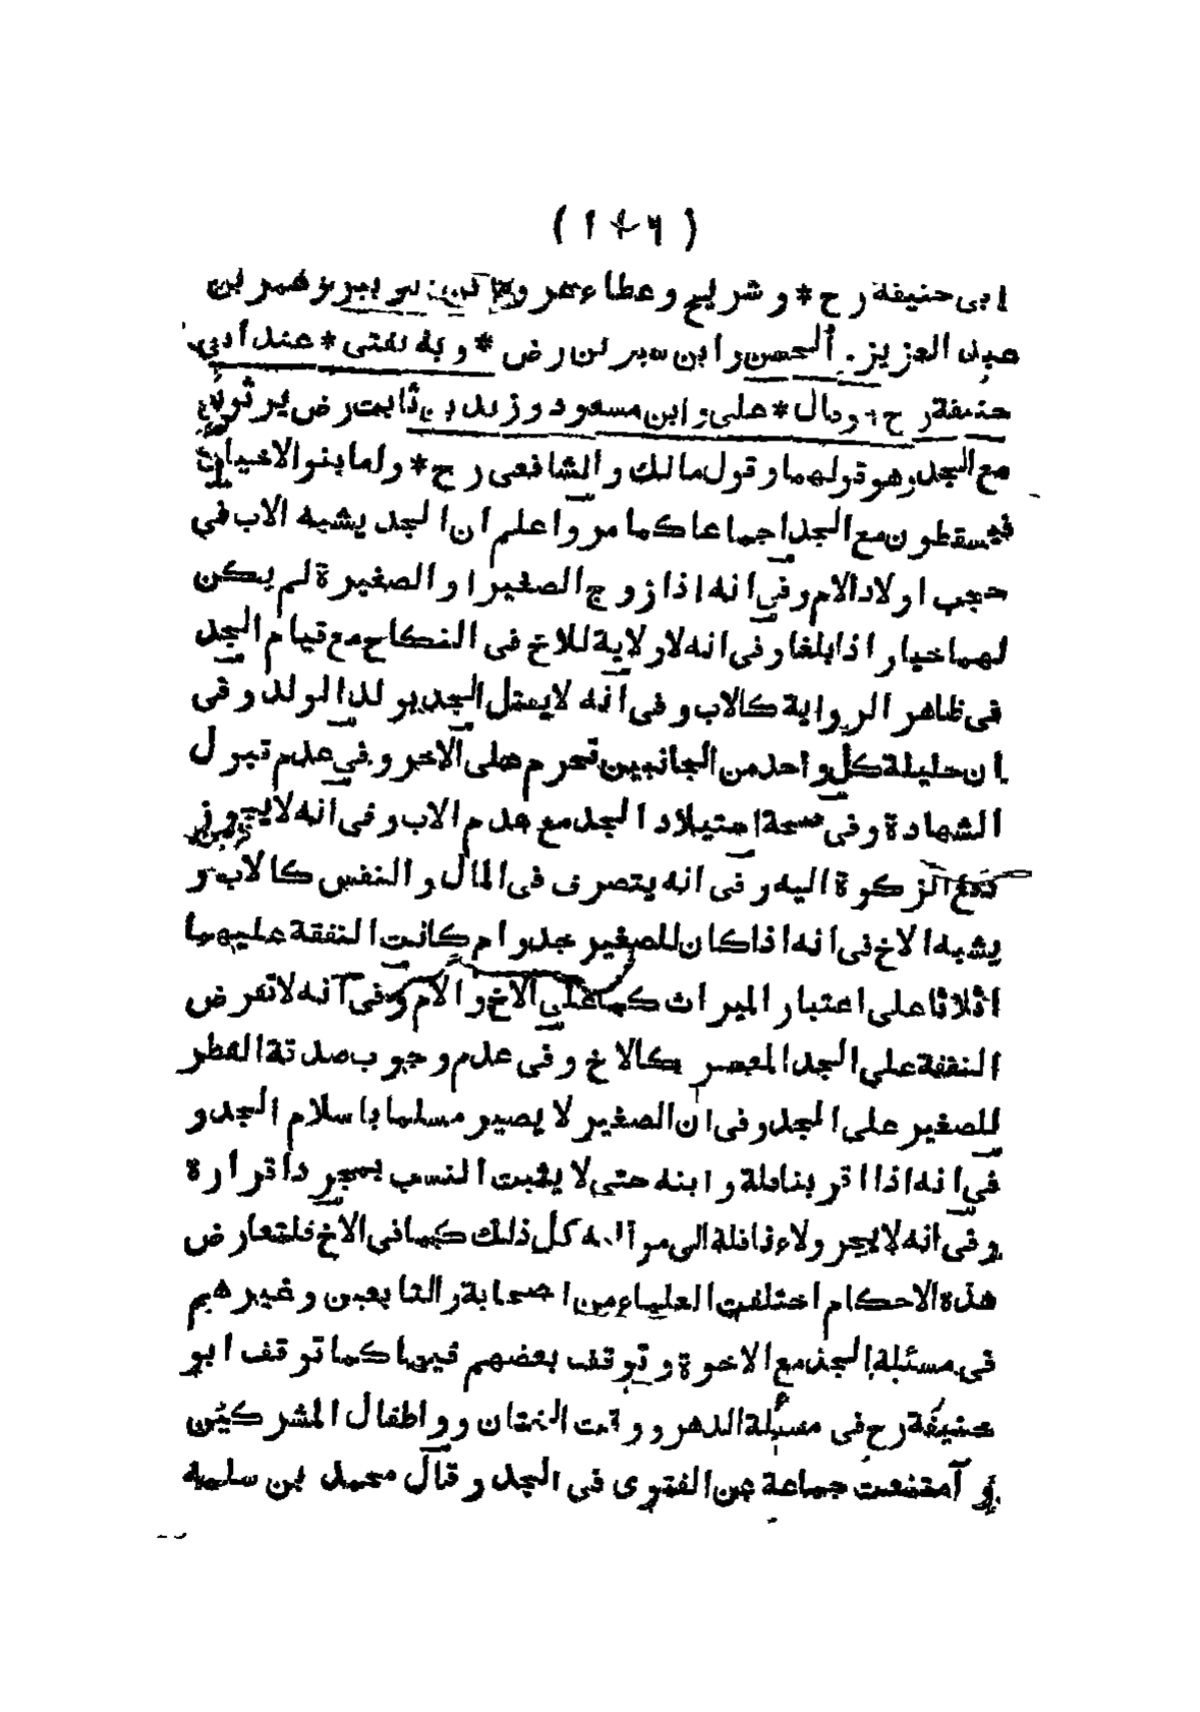 ( ١٠٦ )
ابى حنيفة رح * و شريح و عطاء و عمر بن
عبد العزيز . الحسن و ابن سيرين رض * و به نفتى * عند ابى
حنيفة رح * و قال * على و ابن مسعود و زيد بن ثابت رض يرثون
مع الجد و هو قولهما و قول مالك و الشافعى رح * و اما بنو الاخياف
فيسقطون مع الجد اجماعا كما مر و اعلم ان الجد يشبه الاب فى
حجب اولاد الام و فى انه اذا زوج الصغير ا و الصغيرة لم يكن
لهما خيار اذا بلغا و فى انه لا ولاية للاخ فى النكاح مع قيام الجد
فى ظاهر الرواية كالاب و فى انه لا يقتل الجد بولد الولد و فى
ان حليلة كل واحد من الجانبين تحرم على الاخر و فى عدم قبول
الشهادة و فى صحة استيلاد الجد مع عدم الاب و فى انه لا يجوز
دفع الزكوة اليه و فى انه يتصرف فى المال و النفس كالاب و
يشبه الاخ فى انه اذا كان للصغير جد و ام كانت النفقة عليهما
اثلاثا على اعتبار الميراث كما على الاخ و الام و فى انه لا تفرض
النفقة على الجد المعسر كالاخ و فى عدم وجوب صدقة الفطر
للصغير على الجد و فى ان الصغير لا يصير مسلما باسلام الجد و
فى انه اذا اقر بنافلة و ابنه حتى لا يثبت النسب بمجرد اقراره
و فى انه لا يجر ولاء نافلة الى مواليه كل ذلك كما فى الاخ فلتعارض
هذه الاحكام اختلفت العلماء من الصحابة و التابعين و غيرهم
فى مسئلة الجد مع الاخوة و توقف بعضهم فيها كما توقف ابو
حنيفة رح فى مسئلة الدهر و وقت الختان و اطفال المشركين
و امتنعت جماعة عن الفتوى فى الجد و قال محمد بن سلمة